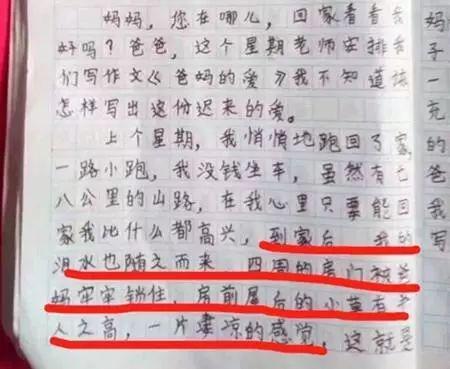 妈妈，您在哪儿，回家看看我
好吗？爸爸，这个星期老师安排我
们写作文《爸妈的爱》我不知道该
怎样写出这份迟来的爱。
上个星期，我悄悄地跑回了家，
一路小跑，我没钱坐车，虽然有七
八公里的山路，在我心里只要能回
家我比什么都高兴，到家后，我的
泪水也随之而来，四周的房门被爸
妈牢牢锁住，房前屋后的小草有
人之高，一片凄凉的感觉，这就是
妈
子
一
充
的
爸
我
写